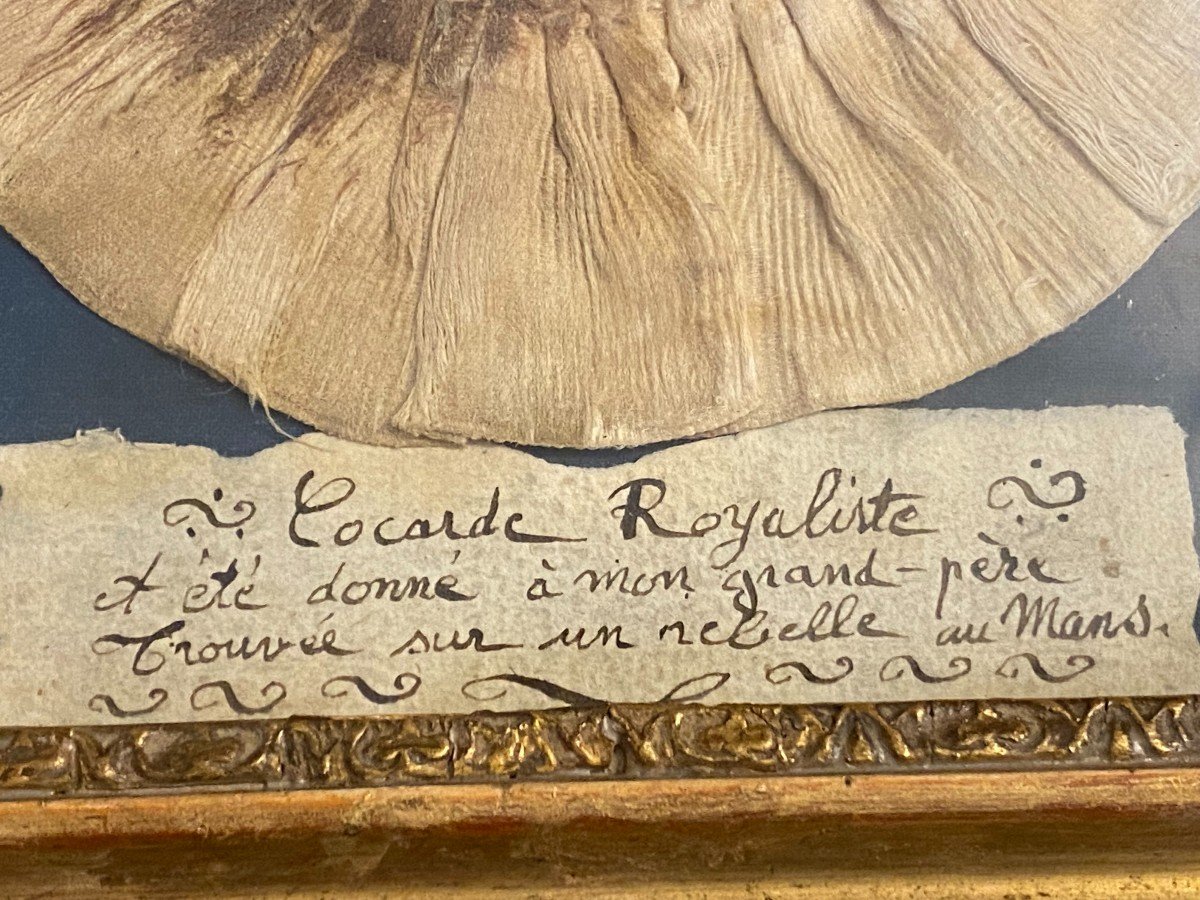 Cocarde Royaliste
A été donné à mon grand-père
Trouvée sur un rebelle au Mans.